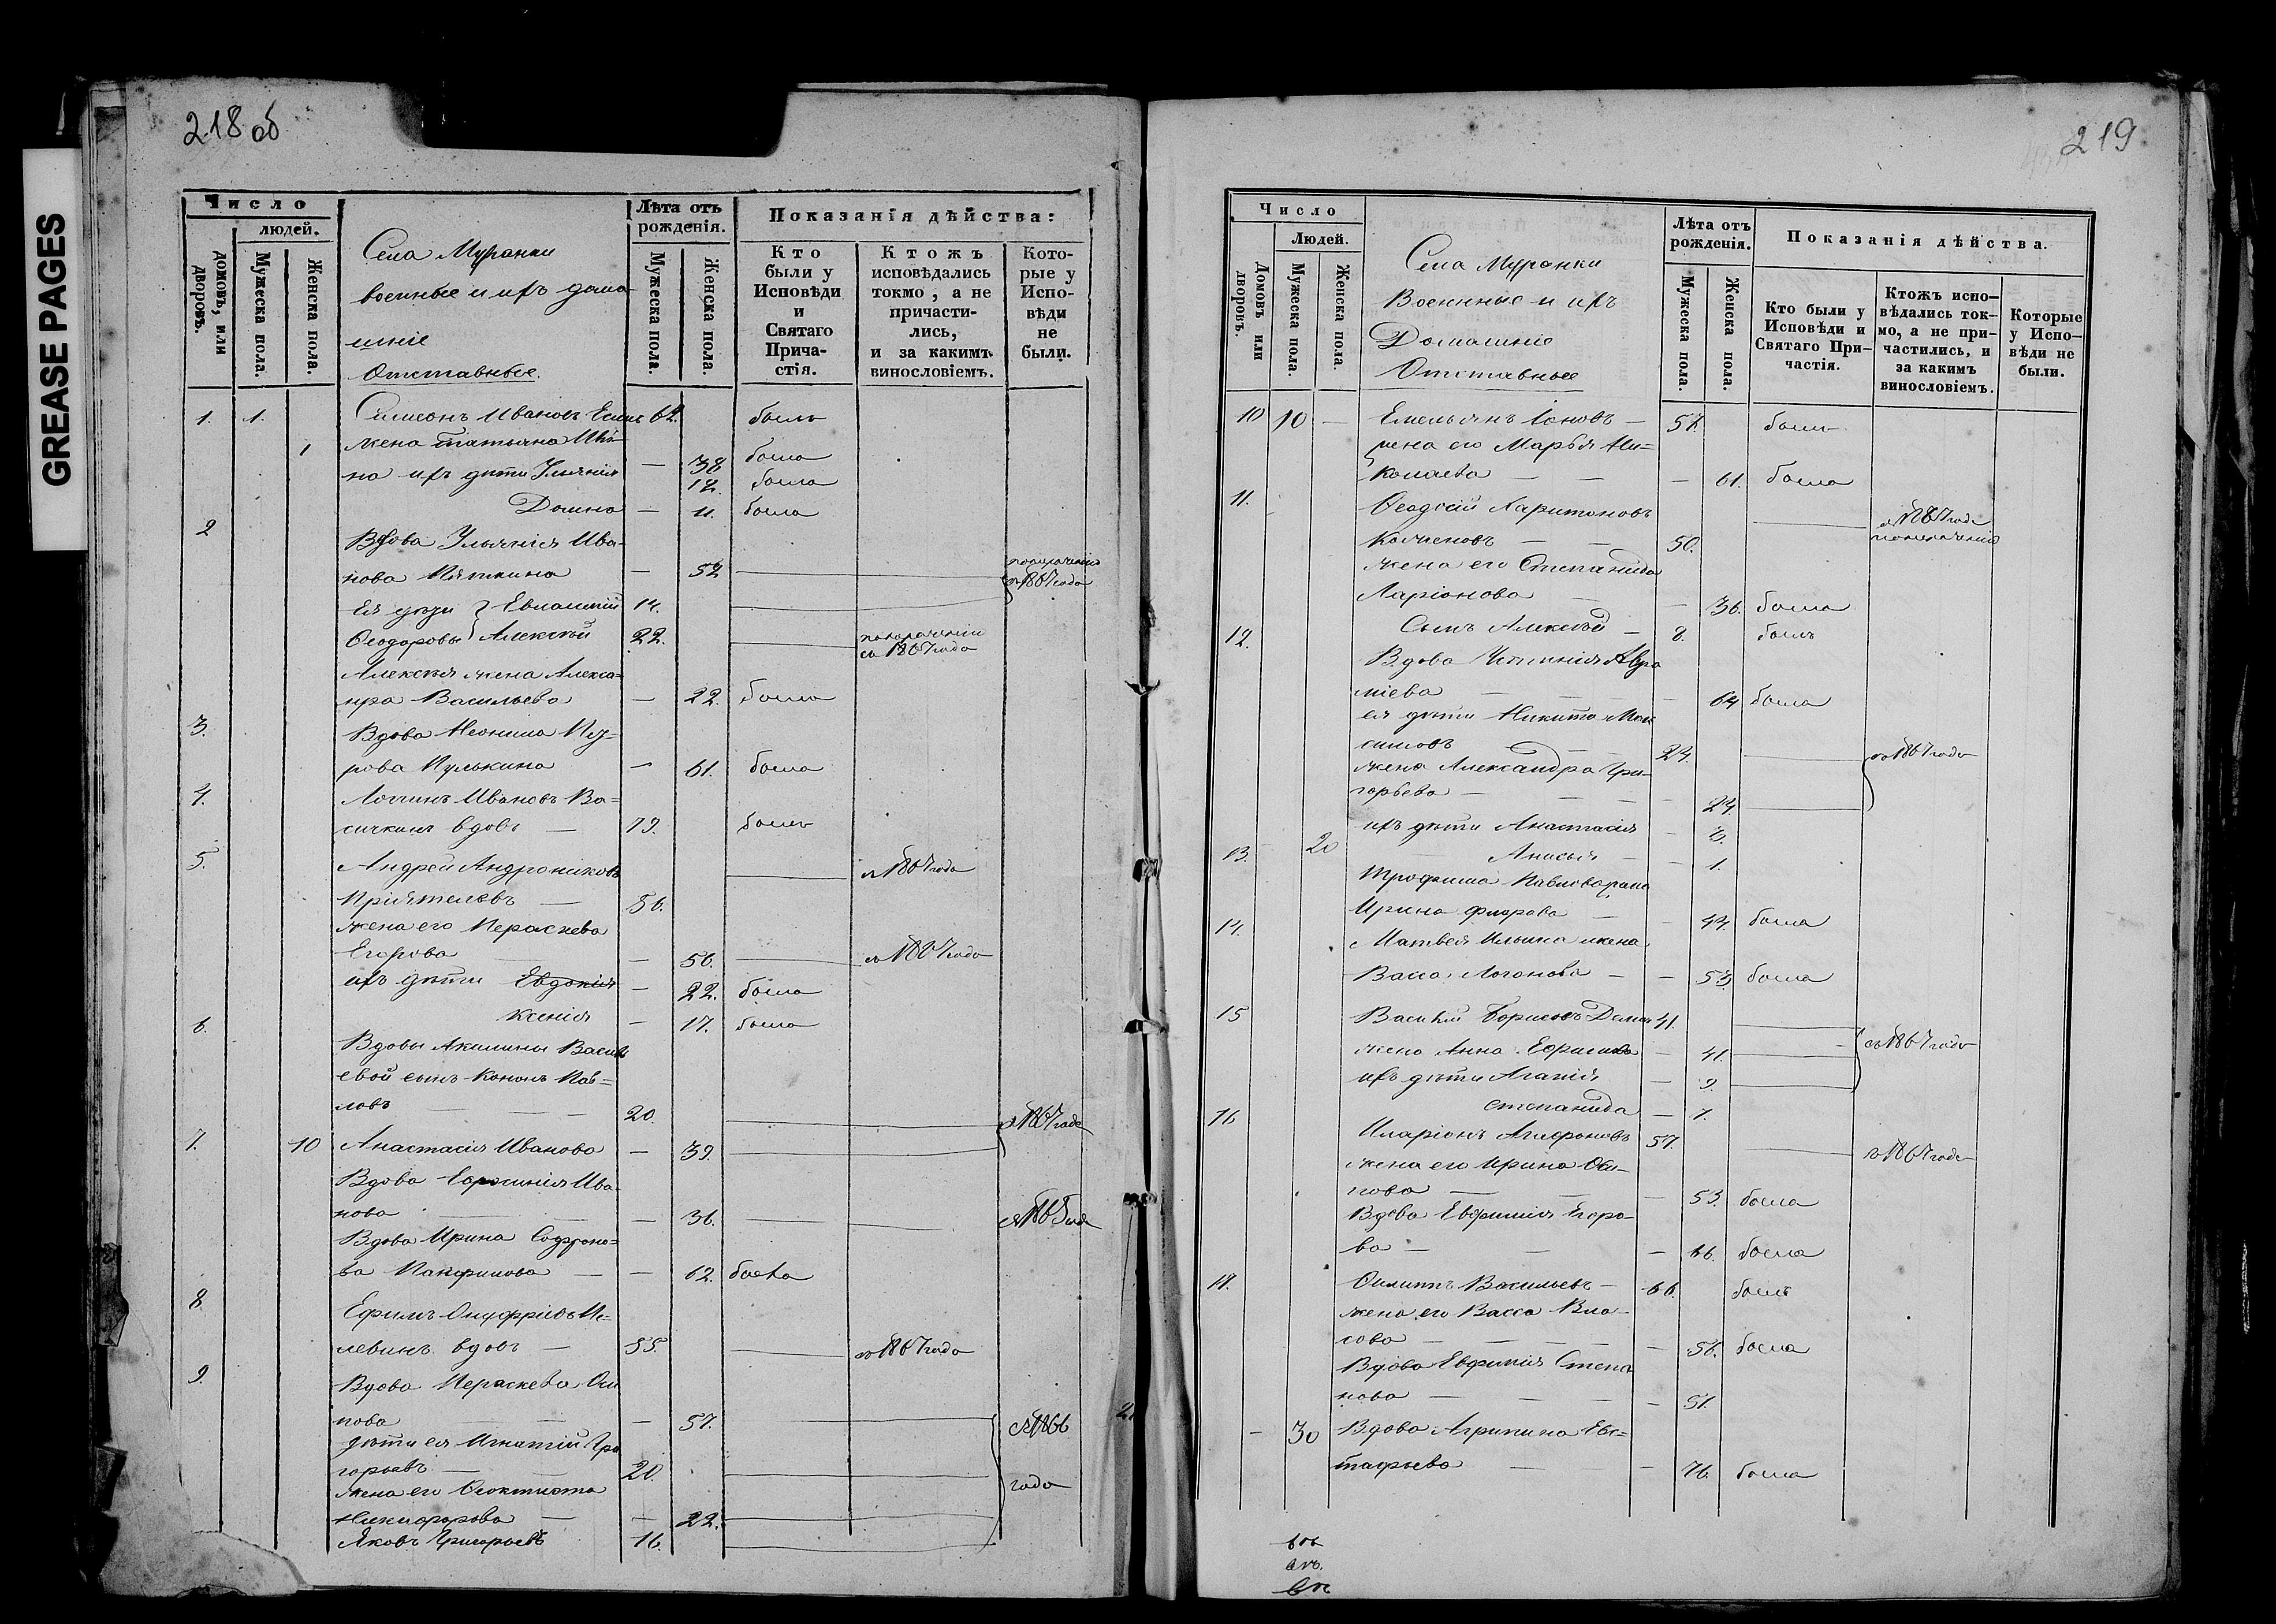 GREASE PAGES
218 об
Число
людей.
домовъ, или дворовъ.
Мужеска пола.
Женска пола.
Села Муранки
военные и ихъ дома-
шніе
Отставные.
Лѣта отъ рожденія.
Мужеска пола.
Женска пола.
Показанія дѣйства:
Кто были у Исповѣди и Святаго Прича-стія.
Ктожъ исповѣдались токмо, а не причасти-лись, и за какимъ винословіемъ.
Кото-рые у Испо-вѣди не были.
1. 1. Симеонъ Ивановъ 62. былъ
1 жена Татьяна
на ихъ дѣти Ульянія — 38 была
12. была
Домна — 11. была
2 Вдова Ульянія Ива-
нова — 52 по нераченію съ 1867 года
Ея дѣти Евлампій 14.
Ѳеодоровы Алексѣй 22. по нераченію съ 1867 года
Алексѣя жена Алекса-
ндра Васильева — 22. была
3. Вдова
рова Пулькина — 61. была
4. Логинъ Ивановъ Ва=
сичкинъ вдовъ — 79. былъ
5. Андрей Андрониковъ съ 1867 года
Пріятелевъ — 56.
жена его Параскева
Егорова — 56. съ 1867 года
ихъ дѣти Евдокія — 22. была
Ксенія — 17. была
6. Вдовы Акилины Василь
евой сынъ Кононъ Пав=
ловъ — — 20.
съ 1867 года
7. 10 Анастасія Иванова — 39.
Вдова Евфосинія Ива
нова — 36.
Вдова Ирина Софроно=
ва Панфилова — — 62. была
8. Ефимъ Онуфріевъ
левинъ вдовъ — 55. съ 1867 года
9. Вдова Параскева Оси
пова — 57. съ 1866
дѣти ея Игнатій Гри
горьевъ — 20. года
жена его Ѳеоктиста
Никифорова — — 22.
Яковъ Григорьевъ 16.
219
Число
Людей.
Домовъ или дворовъ.
Мужеска пола.
Женска пола.
Села Муранки
Военные и ихъ
Домашніе
Отставные
Лѣта отъ рожденія.
Мужеска пола.
Женска пола.
Показанія дѣйства.
Кто были у Исповѣди и Святаго При-частія.
Ктожъ испо-вѣдались ток-мо, а не при-частились, и за какимъ винословіемъ.
Которые у Испо-вѣди не были.
10 10 — Емельянъ Іоновъ — 57. былъ
жена его Марѳа Ни-
колаева — — — 61. была
11. Ѳеодосій Харитоновъ съ 1867 года
— — 50. по нераченію
жена его Степанида
Ларіонова — — 36. была
Сынъ Алексѣй — 8. былъ
12. Вдова Авра
міева — — 64 была
ея дѣти Никита Мак
симовъ — 24. съ 1867 года
жена Александра Гри-
горьева — — — 24.
ихъ дѣти Анастасія — 3.
20 Анисья — — 1.
13. Трофима Павлова жена
Ирина Фролова — — 44. была
14. Матвея Ильина жена
Васса — — 53. была
15 Василій Борисовъ 41.
жена Анна — 41. съ 1867 года
ихъ дѣти Агапія — 9.
Степанида — 7.
16 Иларіонъ Агафоновъ 57. съ 1867 года
жена его Ирина Оси-
пова — — — 53. была
Вдова Евфимія Егоро-
ва — — — 66. была
18. Филиппъ Васильевъ — 66. былъ
жена его Васса Вла-
сова — — — — 56. была
Вдова Евфимія Степа
нова — — — — 51.
— 30 Вдова Агрипина Евс=
тафьева — — 76. была